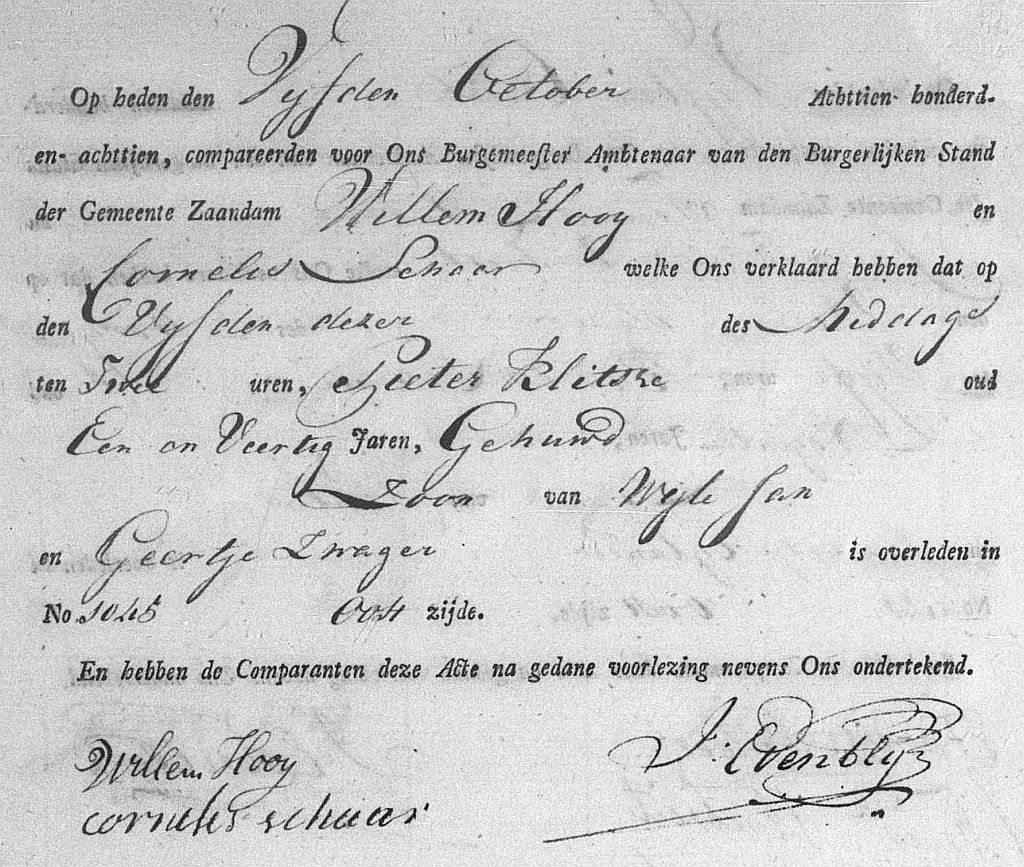 Op heden den Vyfden October Achttien honderd.
en- achttien, compareerden voor Ons Burgemeester Ambtenaar van den Burgerlijken Stand
der Gemeente Zaandam Willem Hooy en
Cornelis Schaar welke Ons verklaard hebben dat op
den Vyfden dezer des Middags
ten Twee uren, Pieter Klitske oud
Een en Veertig Jaren, Gehuwd
Zoon van Wyle Jan
en Geertje Zwager is overleden in
No. 1045 Oost zijde.
En hebben de Comparanten deze Acte na gedane voorlezing nevens Ons ondertekend.
Willem Hooy J: Evenblij
cornelis schaar